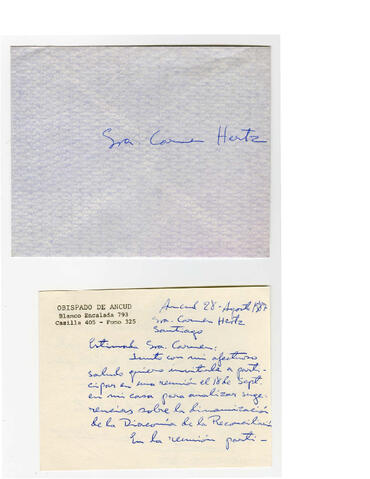 Sra. Carmen Hertz
OBISPADO DE ANCUD
Blanco Encalada 793
Casilla 405 - Fono 325
Ancud 28-Agosto 1987
Sra. Carmen Hertz
Santiago
Estimada Sra. Carmen:
Junto con mi afectuoso
saludo quiero invitarla a parti-
cipar en una reunión el 18 de Sept.
en mi casa para analizar suge-
rencias sobre la dinamización
de la Diaconía de la Reconciliación
En la reunión parti-